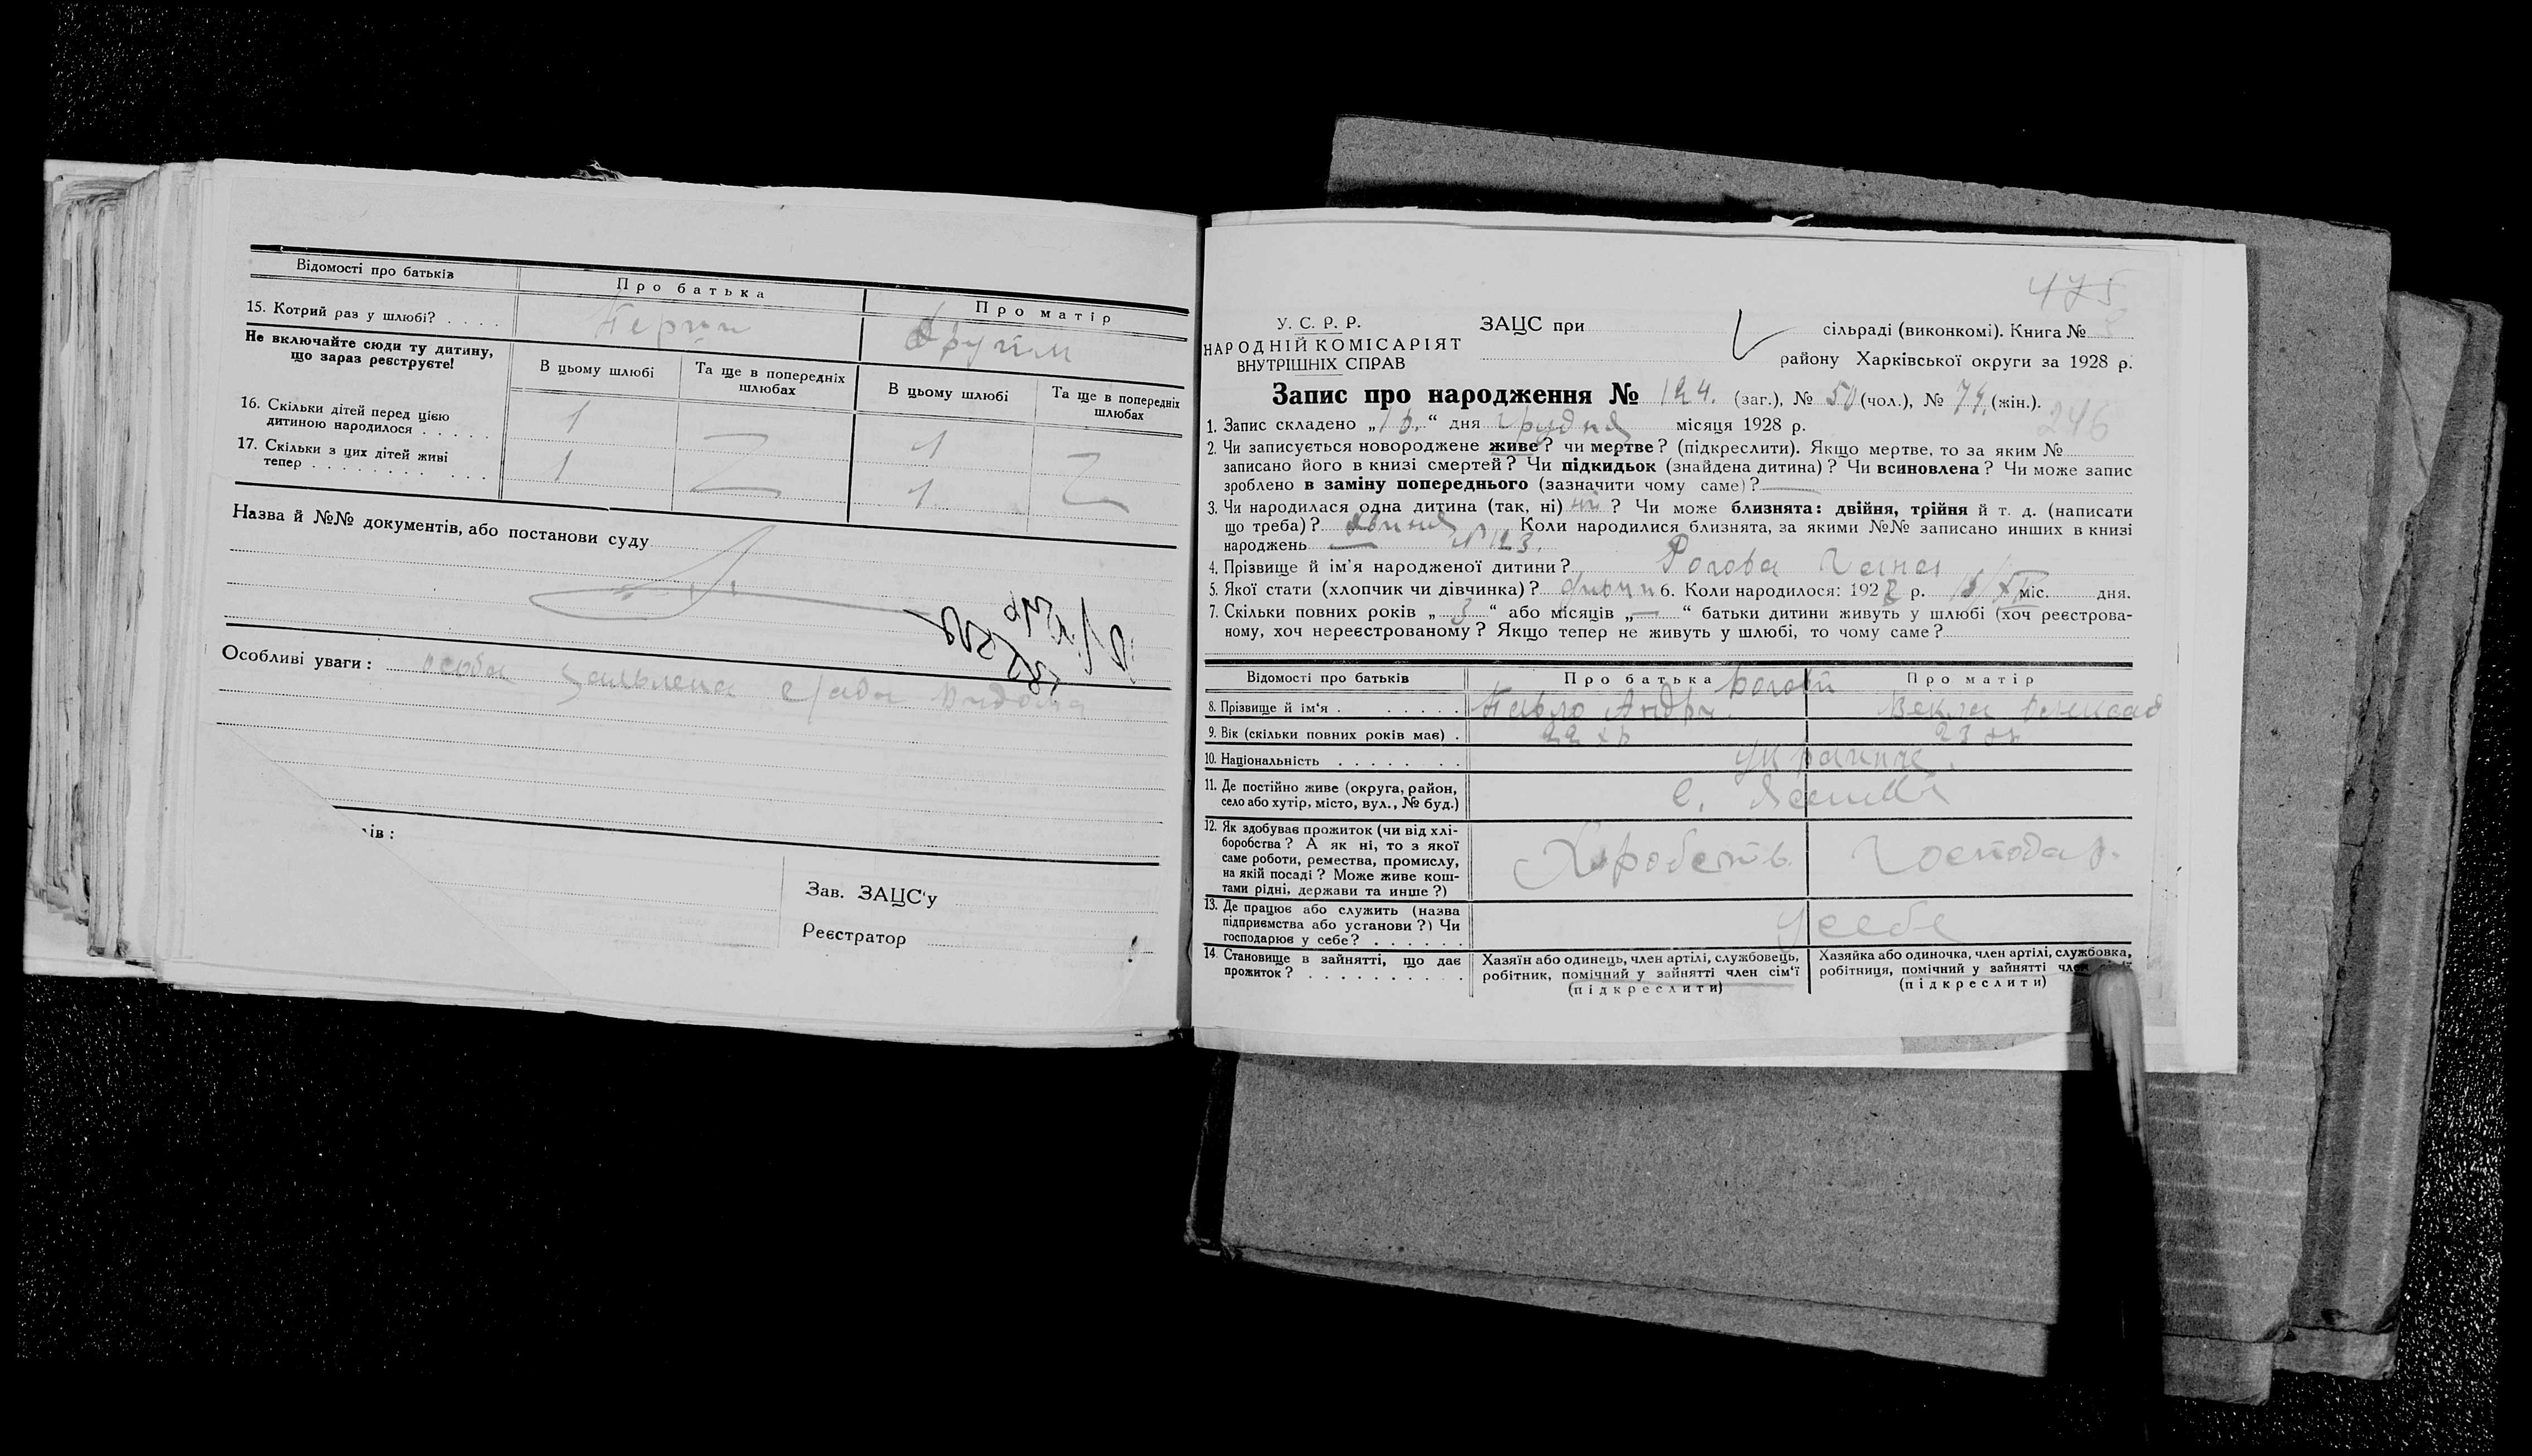 Відомості про батьків
Про батька
Про матір
15. Котрий раз у шлюбі? . . . .
Перший
Другий
Не включайте сюди ту дитину,
що зараз реєструєте!
В цьому шлюбі
Та ще в попередніх
шлюбах
В цьому шлюбі
Та ще в попередніх
шлюбах
16. Скільки дітей перед цією
дитиною народилося . . . . .
1
1
17. Скільки з цих дітей живі
тепер . . . . . . . . . . .
1
1
Назва й №№ документів, або постанови суду
Особливі уваги: особа
ів:
Зав. ЗАЦС'у
Реєстратор
475
У. С. Р. Р.
НАРОДНІЙ КОМІСАРІЯТ
ВНУТРІШНІХ СПРАВ
ЗАЦС при
сільраді (виконкомі). Книга № 8
району Харківської округи за 1928 р.
Запис про народження № 124. (заг.), № 50 (чол.), № 74. (жін.).
246
1. Запис складено „ “ дня грудня місяця 1928 р.
2. Чи записується новороджене живе? чи мертве? (підкреслити). Якщо мертве, то за яким №
записано його в книзі смертей? Чи підкидьок (знайдена дитина)? Чи всиновлена? Чи може запис
зроблено в заміну попереднього (зазначити чому саме)? —
3. Чи народилася одна дитина (так, ні) ні ? Чи може близнята: двійня, трійня й т. д. (написати
що треба)? двійня Коли народилися близнята, за якими №№ записано инших в книзі
народжень — № 123.
4. Прізвище й ім'я народженої дитини? Рогова Ганна
5. Якої стати (хлопчик чи дівчинка)? 6. Коли народилося: 1928 р. міс. дня.
7. Скільки повних років „ 3 “ або місяців „ — “ батьки дитини живуть у шлюбі (хоч реєстрова-
ному, хоч нереєстрованому? Якщо тепер не живуть у шлюбі, то чому саме?
Відомості про батьків
Про батька
Про матір
Рогови
8. Прізвище й ім'я . . . . . .
Павло Андр.
Векла
9. Вік (скільки повних років має) .
22
23
10. Національність . . . . . . .
Українці.
11. Де постійно живе (округа, район,
село або хутір, місто, вул., № буд.)
с.
12. Як здобуває прожиток (чи від хлі-
боробства? А як ні, то з якої
саме роботи, ремества, промислу,
на якій посаді? Може живе кош-
тами рідні, держави та инше?)
Хлробств.
Господар.
13. Де працює або служить (назва
підприємства або установи?) Чи
господарює у себе? . . . . . .
у себе
14. Становище в зайнятті, що дає
прожиток? . . . . . . . . . . .
Хазяїн або одинець, член артілі, службовець,
робітник, помічний у зайнятті член сім'ї
(підкреслити)
Хазяйка або одиночка, член артілі, службовка,
робітниця, помічний у зайнятті
(підкреслити)